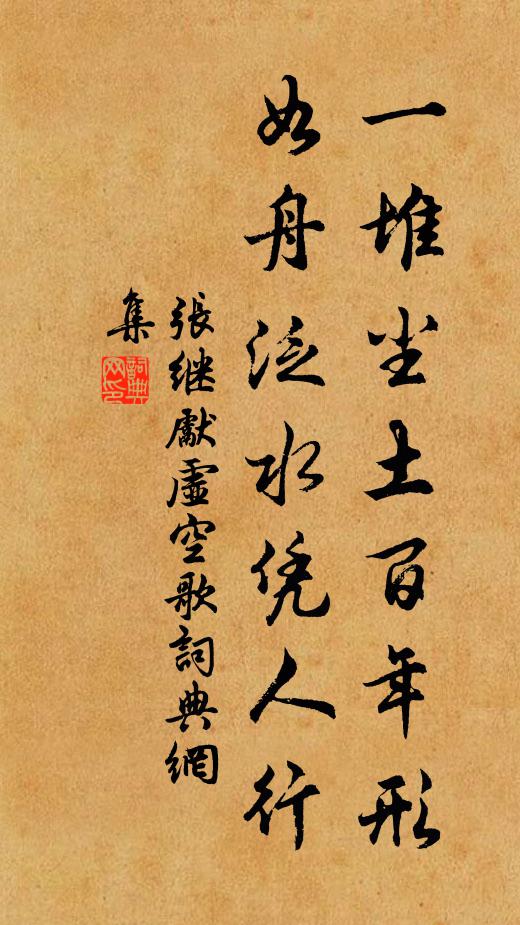 一堆尘土百年形
如舟泛水凭人行
張继獻虛空歌詞典網
集
詞典
网印